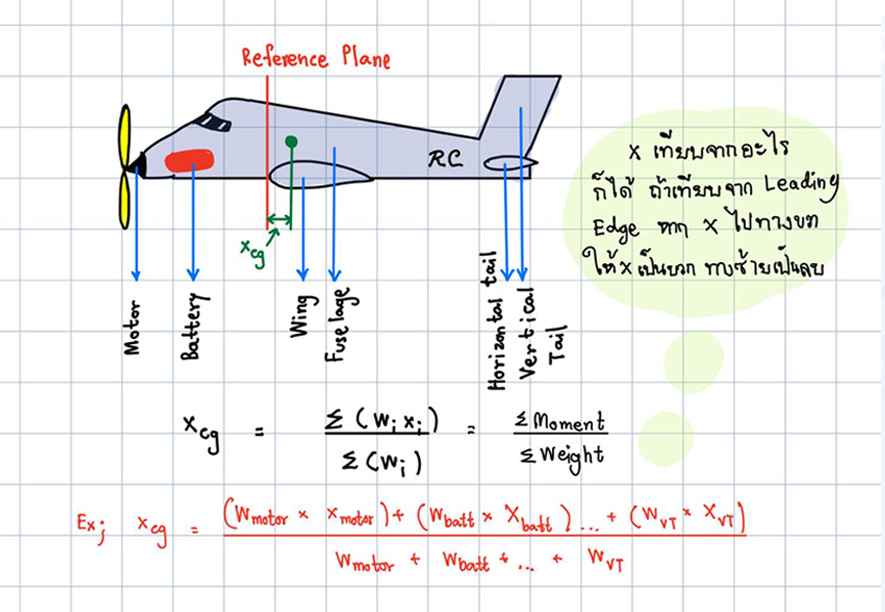 Reference Plane
RC
xcg
Motor
Battery
Wing
Fuselage
Horizontal tail
Vertical
Tail
x เทียบจากอะไร
ก็ได้ ถ้าเทียบจาก Leading
Edge หาก x ไปทางขวา
ให้ x เป็นบวก ทางซ้ายเป็นลบ
xcg = Σ(wixi) / Σ(wi) = ΣMoment / ΣWeight
Ex; xcg = (Wmotor × xmotor) + (Wbatt × Xbatt) ... + (WVT × XVT)
Wmotor + Wbatt + ... + WVT